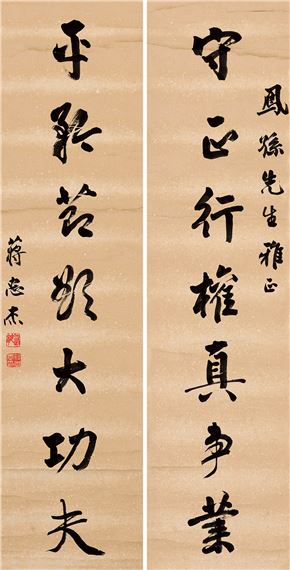 鳳孫先生雅正
守正行權真事業
平矜節欲大功夫
蔣志杰